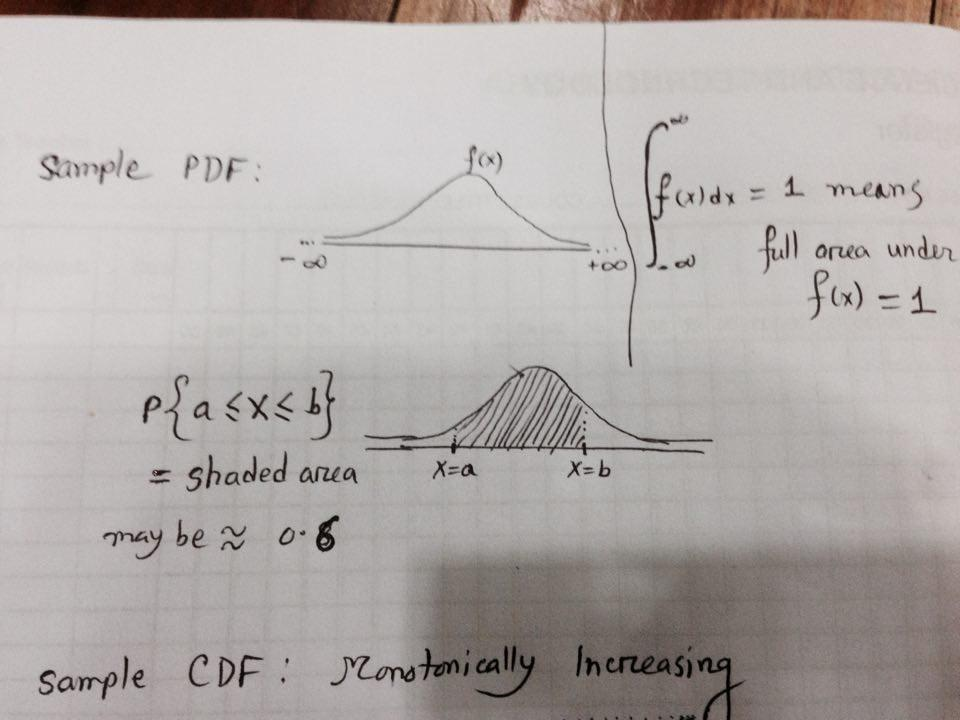 Sample PDF:
f(x)
... ...
-∞ +∞
∫_{-∞}^{∞} f(x)dx = 1 means
full area under
f(x) = 1
P{a ≤ X ≤ b}
= shaded area
X=a X=b
may be ≈ 0.6
Sample CDF: Monotonically Increasing